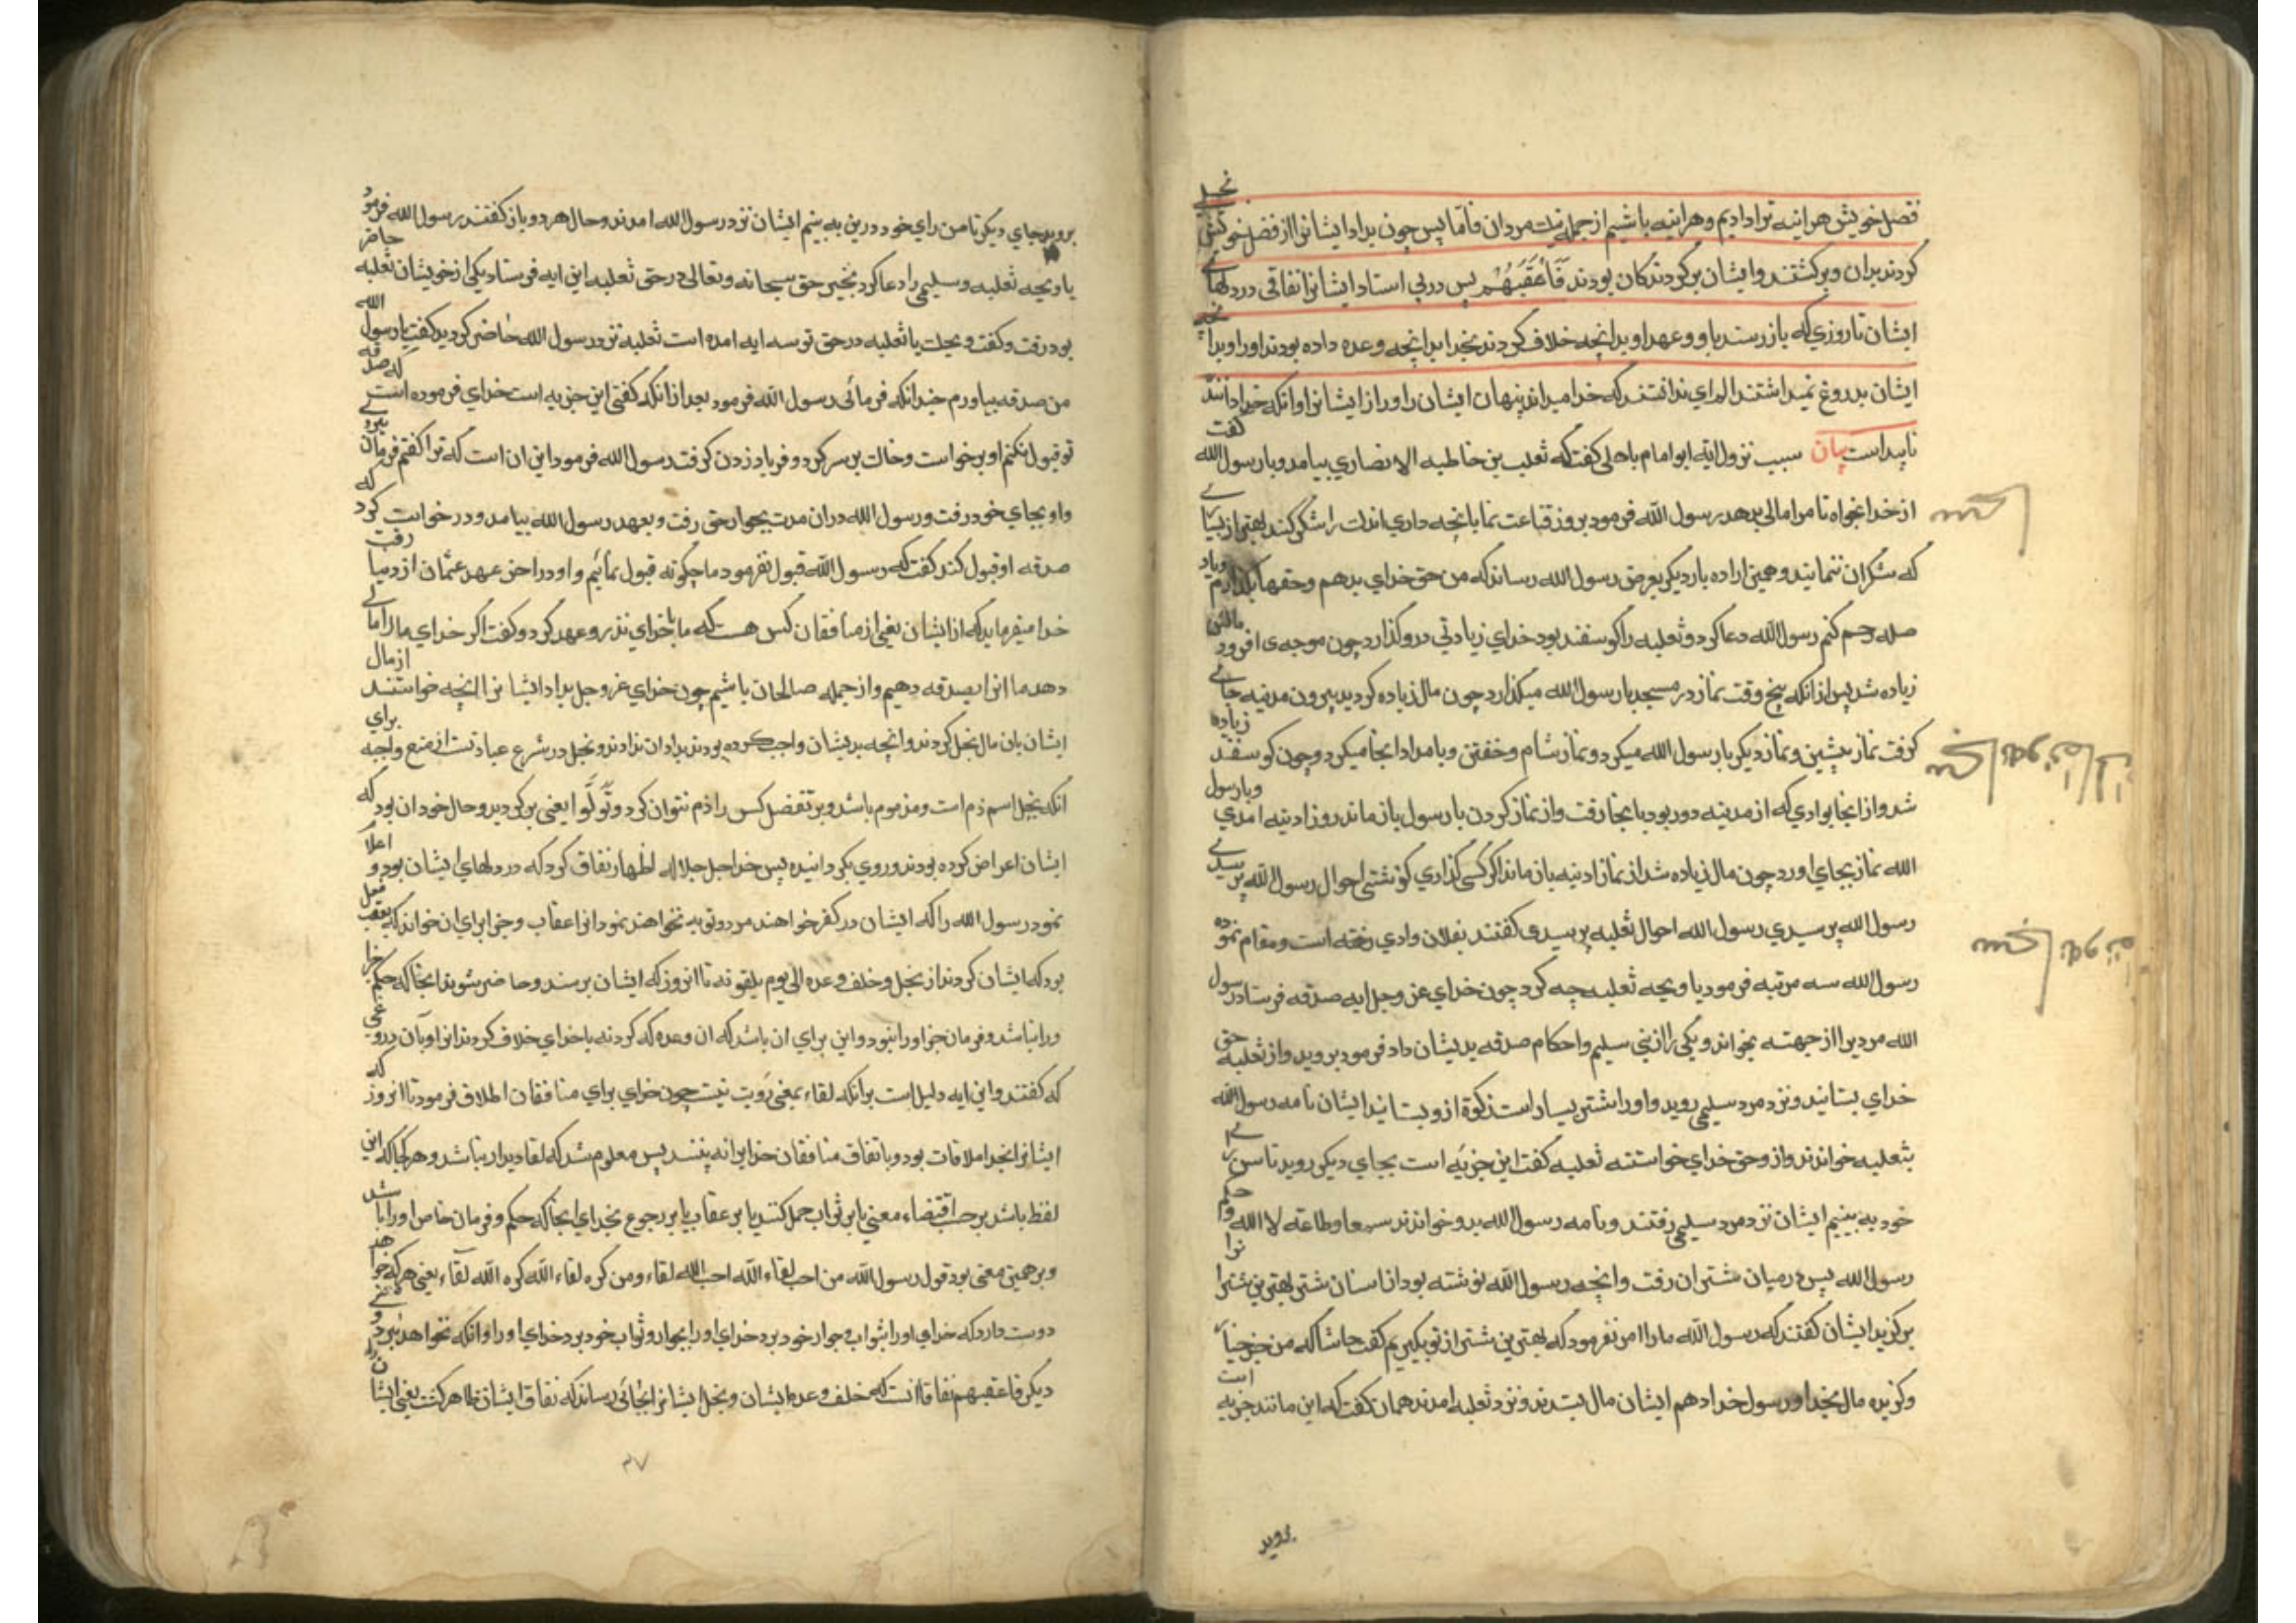 فضل خویش هراینه ترا دادیم وهراینه باشیم از جمله نیک مردان فلمّا پس چون بداد ایشانرا از فضل خویش بخیلی
کردند بدان وبرکشتند وایشان برکردندکان بودند فَاَعْقَبَهُمْ پس درپی استاد ایشانرا نفاقی دردلهای
ایشان تا روزی که بازرسند باو وعهد اوبدانچه خلاف کردند بخدا بدانچه وعده داده بودند اورا وبدانچه
ایشان بدروغ میداشتند الم ای ندانستند که خدا میداند پنهان ایشان را وراز ایشانرا وانکه خدا داننده
ناپیداست بیان سبب نزول ایه ابوامام باهلی گفت که ثعلب بن خاطبه الانصاری بیامد وبا رسول الله گفت
از خدا بخواه تا مرا مالی بدهد رسول الله فرمود بروز قناعت نما بانچه داری اندک را شکر کند بهتر از بسیاری
که شکر ان ننمایند وهمین اراده بار دیکر بعرض رسول الله رساند که من حق خدای بدهم وحقها بکذارم وباد
صله رحم کنم رسول الله دعا کرد وثعلبه را کوسفند بود خدای زیادتی درو کذارد چون موجه ی افزود مالش
زیاده شد پس ازانکه پنج وقت نماز در مسجد با رسول الله میکذارد چون مال زیاده کردید بیرون مدینه جای
کرفت نماز پیشین ونماز دیکر با رسول الله میکرد ونماز شام وخفتن وبامداد انجا میکرد وچون کوسفند زیاده
شد واز انجا بوادی که از مدینه دور بود بانجا رفت واز نماز کردن با رسول باز ماند روز ادینه امدی وبا رسول
الله نماز بجای اورد چون مال زیاده شد از نماز ادینه باز ماند اکر کسی کذاری کو نشتی احوال رسول الله پرسیدی
رسول الله پرسیدی رسول الله احوال ثعلبه پرسیدی کفتند بفلان وادی رفته است ومقام نموده
رسول الله سه مرتبه فرمود یا ویحه ثعلبه چه کرد چون خدای عز وجل ایه صدقه فرستاد رسول
الله مردیرا از جهنه بخواند ویکی را از بنی سلیم واحکام صدقه بدیشان داد فرمود بروید واز ثعلبه حق
خدای بستانید ونزد مرد سلیمی روید واورا شتر بسیار است زکوة ازو بستانید ایشان نامه رسول الله
بثعلبه خواندند وازو حق خدای خواستند ثعلبه کفت این جزیَه است بجای دیکر روید تا من رای
خود به بینیم ایشان نزد مرد سلیمی رفتند ونامه رسول الله بدو خواندند سمعا وطاعة لا الله وحکم
رسول الله پس درمیان شتران رفت وانچه رسول الله نوشته بود از اسنان شتر بهترین شتر انرا
برکزید ایشان کفتند که رسول الله مارا امر نفرمود که بهترین شتر از تو بکیریم کفت حاشا که من جز خیار
وکزیده مال بخدا ورسول خدا دهم ایشان مال بستدند ونزد ثعلبه امدند همان کفت که این مانند جزیه است
بروید
بروید جای دیکر تا من رای خود درین به بینم ایشان نزد رسول الله امدند وحال هردو باز کفتند رسول الله فرمود
یا ویحه ثعلبه وسلیمی را دعا کرد بخیر حق سبحانه وتعالی در حق ثعلبه این ایه فرستاد یکی از خویشان ثعلبه حاضر
بود رفت وکفت ویحک یا ثعلبه در حق تو سه ایه امده است ثعلبه نزد رسول الله حاضر کردید کفت یا رسول الله
من صدقه بیاورم چندانکه فرمائی رسول الله فرمود بعد از انکه کفتی این جزیه است خدای فرموده است که صدقه
تو قبول نکنم او برخواست وخاک بر سر کرد وفریاد زدن کرفت رسول الله فرمود این ان است که ترا کفتم فرمان نبردی
واو بجای خود رفت ورسول الله دران مدت بجوار حق رفت وبعهد رسول الله بیامد ودرخواست کرد که
صدقه او قبول کند کفت که رسول الله قبول نفرمود ما چکونه قبول نمائیم واو دراخر عهد عثمان از دنیا رفت
خدا میفرماید که از ایشان یعنی از منافقان کس هست که ما با خدای نذر وعهد کرد وکفت اکر خدای ما را مالی
دهد ما انرا بصدقه دهیم واز جمله صالحان باشیم چون خدای عز وجل بداد ایشانرا انچه خواستند از مال
ایشان بان مال بخل کردند وانچه بریشان واجب کرده بودند بدادان ندادند وبخل در شرع عبادتست از منع واجبه برای
انکه بخل اسم ذم است ومذموم باشد وبر تفضل کس را ذم نتوان کرد وَتَوَلَّوا یعنی برکردید وحال خود ان بود که
ایشان اعراض کرده بودند وروی بکردانیده پس خدا جل جلاله اظهار نفاق کرد که دردلهای ایشان بود و اعلا
نمود رسول الله را که ایشان در کفر خواهند مرد وتوبه نخواهند نمود انرا عقاب وجزا برای ان خواند که بعقب فعل
بود که ایشان کردند از بخل وخلف وعده الی یوم یلقونه تا انروز که ایشان برسند وحاضر شوند انجا که حکم جزا
ورا نباشد وفرمان جز اورا نبود واین برای ان باشد که ان وعده که کردند با خدای خلاف کردند
که کفتند واین ایه دلیل است برانکه لقاء بمعنی رَویت نیست چون خدای برای منافقان اطلاق فرمود تا انروز که
ایشانرا بخدا ملاقات بود وباتفاق منافقان خدایرا نه بینند پس معلوم شد که لقا دیدار نباشد وهرکجا که این
لفظ باشد بر حسب اقتضاء معنی یا بر ثواب حمل کنند یا بر عقاب یا بر رجوع بخدای انجا که حکم وفرمان خاص اورا باشد
وبرهمین معنی بود قول رسول الله من احب لقاء الله احب الله لقاء ومن کره لقاء الله کره الله لقآء یعنی هرکه خواهد
دوست دارد که خدای اورا بثواب وجوار خود برد خدای اورا بجوار وثواب خود برد خدای اورا وانکه نخواهد نبرد
دیکر فاعقبهم نفاقا انست که خلف وعده ایشان وبخل ایشانرا بجائی رساند که نفاق ایشان ظاهر کشت یعنی ایشان